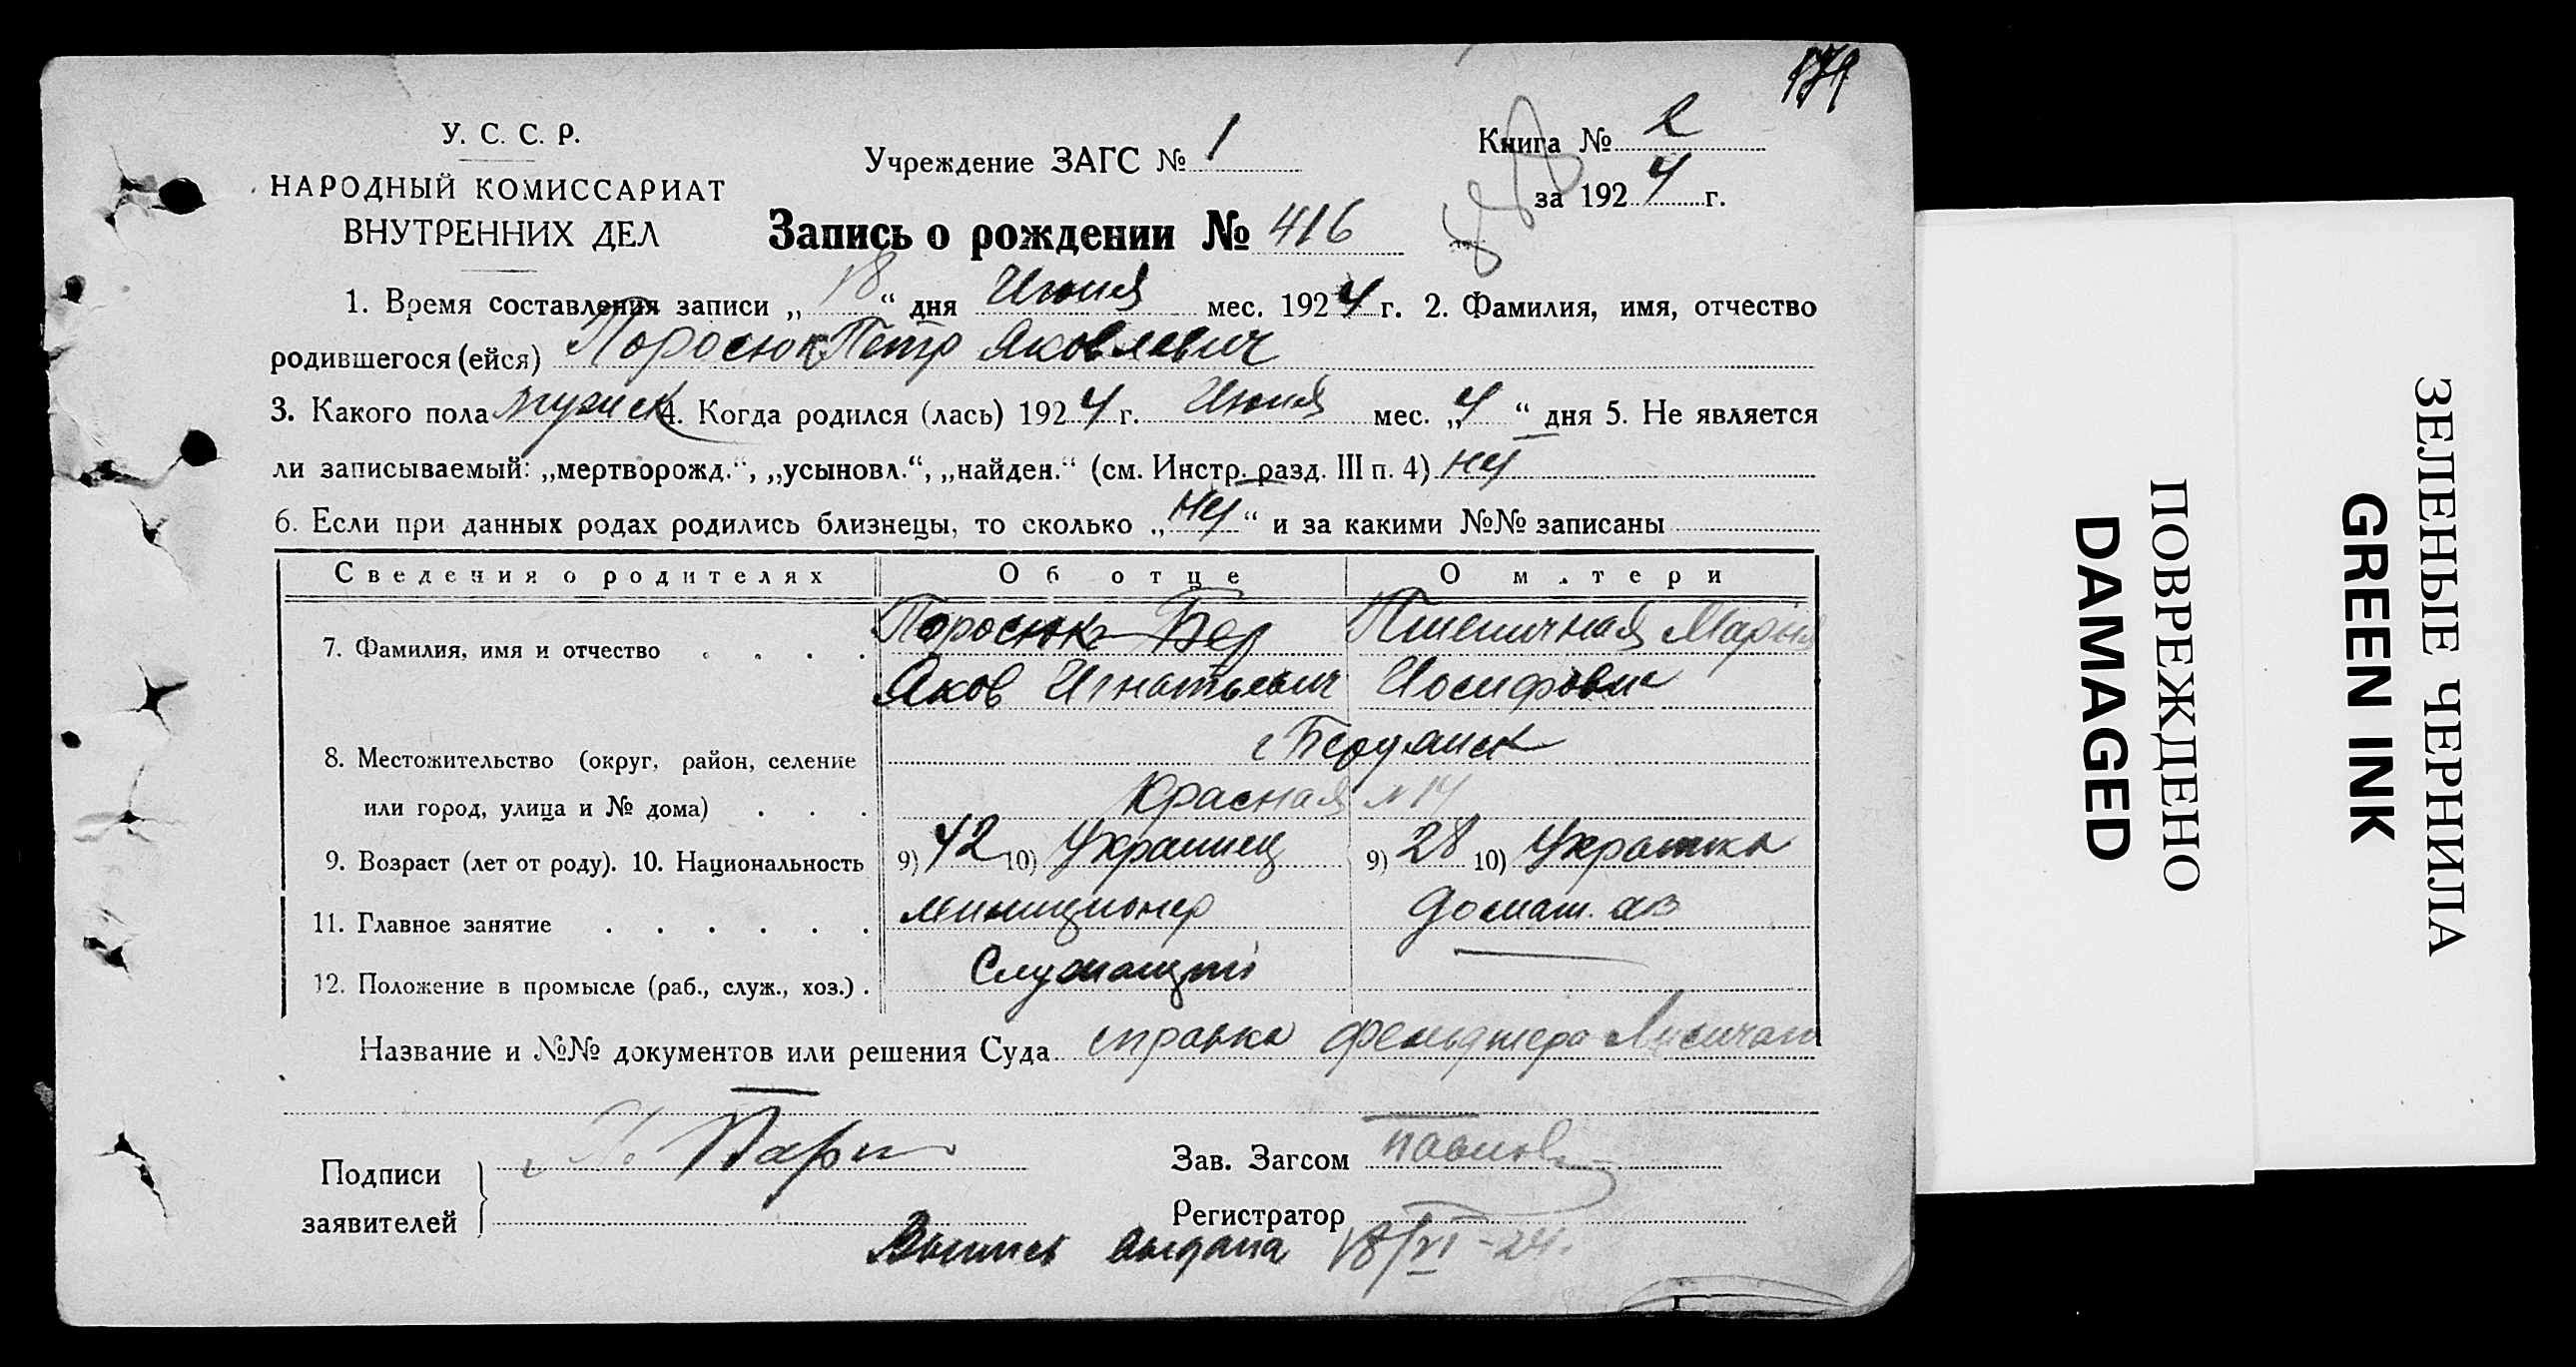 179
У. С. С. Р.
НАРОДНЫЙ КОМИССАРИАТ
ВНУТРЕННИХ ДЕЛ
Учреждение ЗАГС № 1
Книга № 2
за 1924 г.
Запись о рождении № 416
1. Время составления записи „18“ дня Июня мес. 1924 г. 2. Фамилия, имя, отчество
родившегося (ейся) Поросюк Петр Яковлевич
3. Какого пола мужск 4. Когда родился (лась) 1924 г. Июня мес. „4“ дня 5. Не является
ли записываемый: „мертворожд.“, „усыновл.“, „найден.“ (см. Инстр. разд. III п. 4) нет
6. Если при данных родах родились близнецы, то сколько „нет“ и за какими №№ записаны
Сведения о родителях Об отце О м.тери
7. Фамилия, имя и отчество Поросюк Бер Пшеничная Мария
Яков Игнатьевич Иосифовн
8. Местожительство (округ, район, селение г Бердянск
или город, улица и № дома) Красная № 14
9. Возраст (лет от роду). 10. Национальность 9) 42 10) Украинец 9) 28 10) Украинка
11. Главное занятие милиционер домаш. хоз
12. Положение в промысле (раб., служ., хоз.) Служащий
Название и №№ документов или решения Суда справка фельдшера
Подписи
заявителей
Зав. Загсом
Регистратор
Выпись выдана 18/VI-24.
ПОВРЕЖДЕНО
DAMAGED
ЗЕЛЕНЫЕ ЧЕРНИЛА
GREEN INK